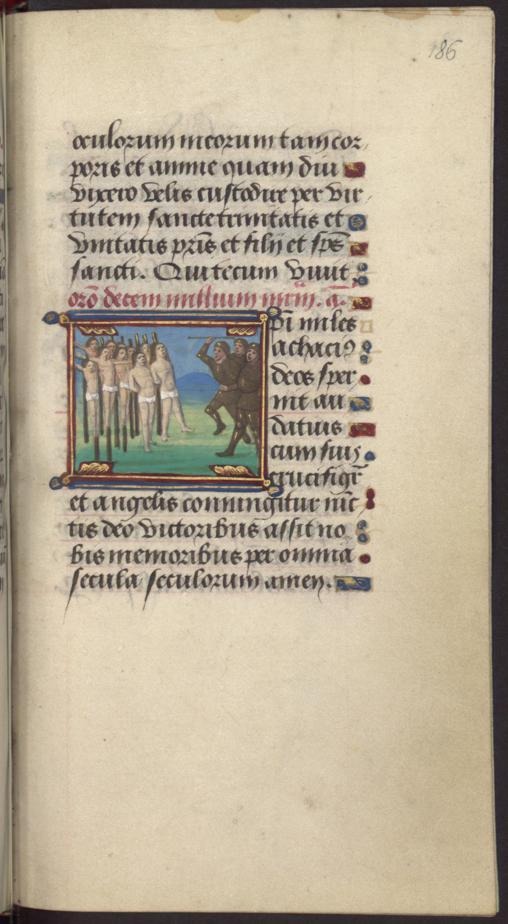 186
oculorum meorum tam cor
poris et anime quam diu
vixero velis custodire per vir
tutem sancte trinitatis et
vnitatis pr̄is et filij et sp̄s
sancti. Qui tecum viuit
oro decem millium m̄r̄m. a.
miles
achaciꝰ
deos sper
nit au
datius
cum suis
crucifigit̄
et angelis coniungitur iūc
tis deo victoribus assit no
bis memoribus per omnia
secula seculorum amen.